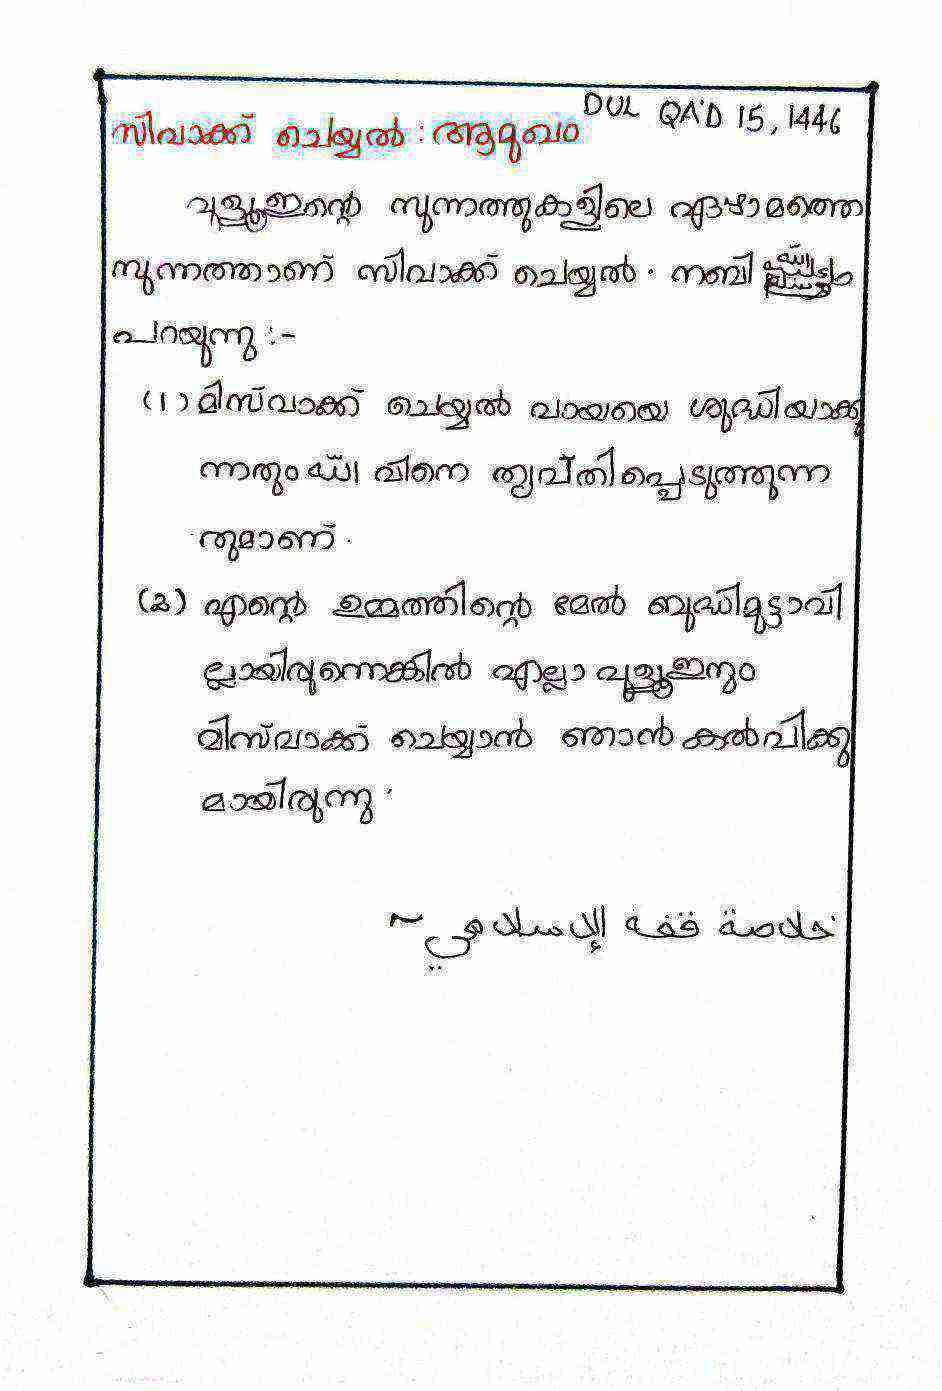 DUL QA'D 15, 1446
സിവാക്ക് ചെയ്യൽ : ആമുഖം
വുളൂഇന്റെ സുന്നത്തുകളിലെ ഏഴാമത്തെ
സുന്നത്താണ് സിവാക്ക് ചെയ്യൽ. നബി ﷺ
പറയുന്നു :-
(1) മിസ്‌വാക്ക് ചെയ്യൽ വായയെ ശുദ്ധിയാക്കു
ന്നതും الله വിനെ തൃപ്തിപ്പെടുത്തുന്ന
തുമാണ്.
(2) എന്റെ ഉമ്മത്തിന്റെ മേൽ ബുദ്ധിമുട്ടാവി
ല്ലായിരുന്നെങ്കിൽ എല്ലാ വുളൂഇനും
മിസ്‌വാക്ക് ചെയ്യാൻ ഞാൻ കൽപിക്കു
മായിരുന്നു.
خلاصة فقه الإسلامي ~